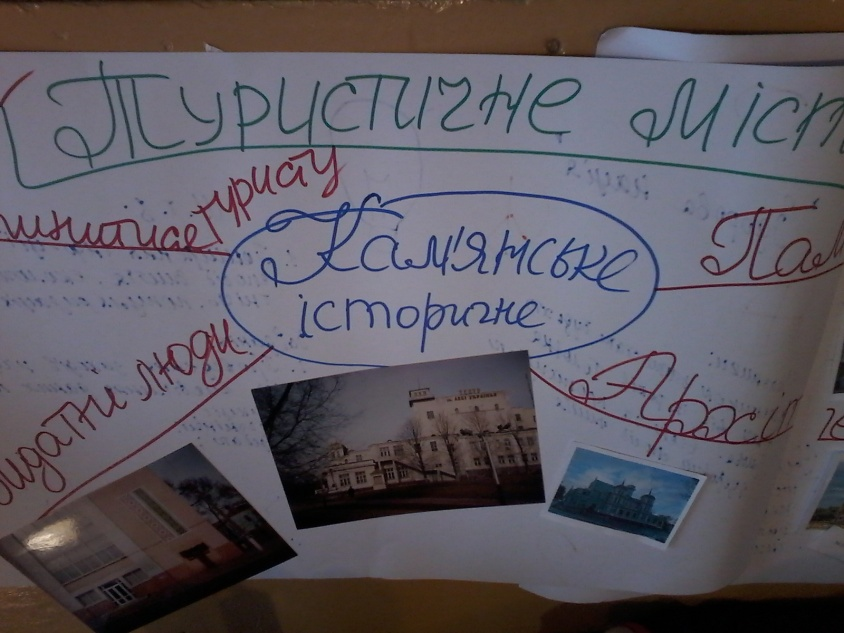 Туристичне міст
туристу
Кам'янське
історичне
Пам
видатні люди
Архі